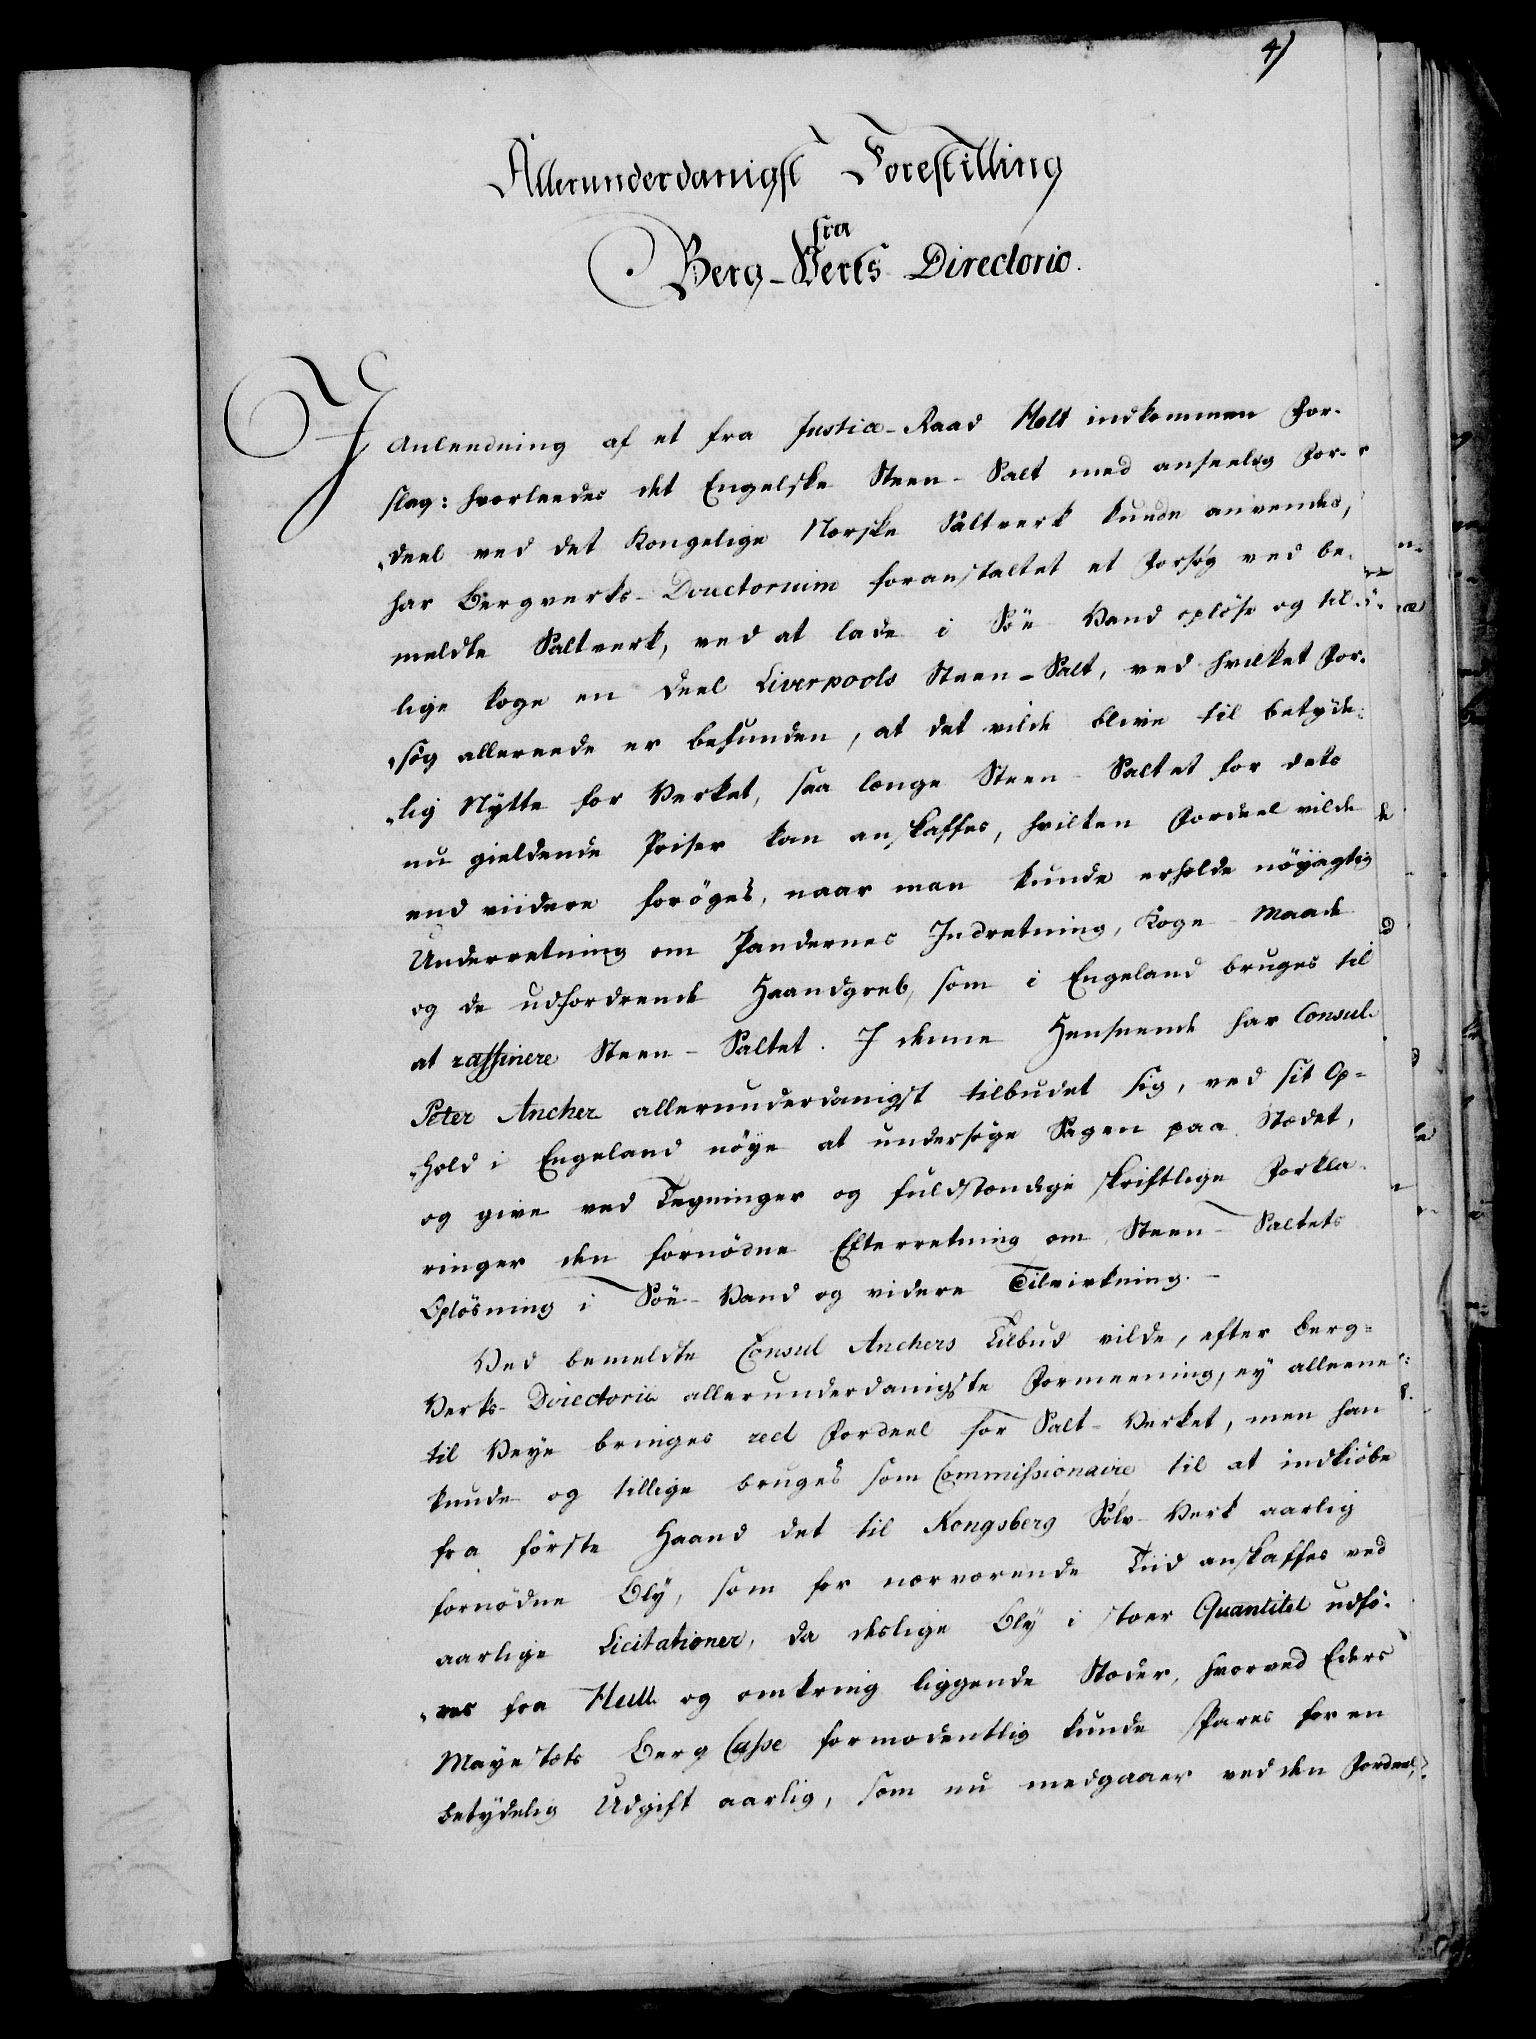 4)
Allerunderdanigst Forestilling
fra
Berg-Verks Directorio.
I Anleedning af et fra Justice-Raad Holt indkommen For-
slag: hvorleedes det Engelske Steen-Salt med anseelig For-
„deel ved det Kongelige Norske Saltverk kunde anvendes,
har Bergverks-Directorium foranstaltet et Forsøg ved be-
meldte Saltverk, ved at lade i Söe-Vand opløse og til-
lige koge en deel Liverpools Steen-Salt, ved hvilket For-
„søg allereede er befunden, at det vilde blive til betyde-
„lig Nytte for Verket, saa længe Steen-Saltet for dets
nu gieldende Priser kan anskaffes, hvilken Fordeel vilde
end viidere forøges, naar man kunde erholde nöyagtig
Underretning om Pandernes Indretning, Koge-Maade
og de udfordrende Haandgreb, som i Engeland bruges til
at raffinere Steen-Saltet. I denne Henseende har Consul
Peter Ancher allerunderdanigst tilbudet sig, ved sit Op-
„hold i Engeland nöye at undersøge Sagen paa Stædet,
og give ved Tegninger og fuldstændige skriftlige Forkla-
ringer den fornødne Efterretning om Steen-Saltets
Opløsning i Söe-Vand og videre Tilvirkning.-
Ved bemeldte Consul Anchers Tilbud vilde, efter Berg-
Verks-Directorii allerunderdanigste Formeening, ey alleene
til Veye bringes reel Fordeel for Salt-Verket, men han
kunde og tillige bruges som Commissionaire til at indkiöbe
fra förste Haand det til Kongsberg Sølv-Verk aarlig
fornødne Bly, som for nærværende Tiid anskaffes ved
aarlige Licitationer, da deslige Bly i stoer Quantitet udfö-
„res fra Hull og omkring liggende Stæder, hvorved Eders
Mayestæts Berg Casse formodentlig kunde spares for en
betydelig Udgift aarlig, som nu medgaaer ved den Fordeel,